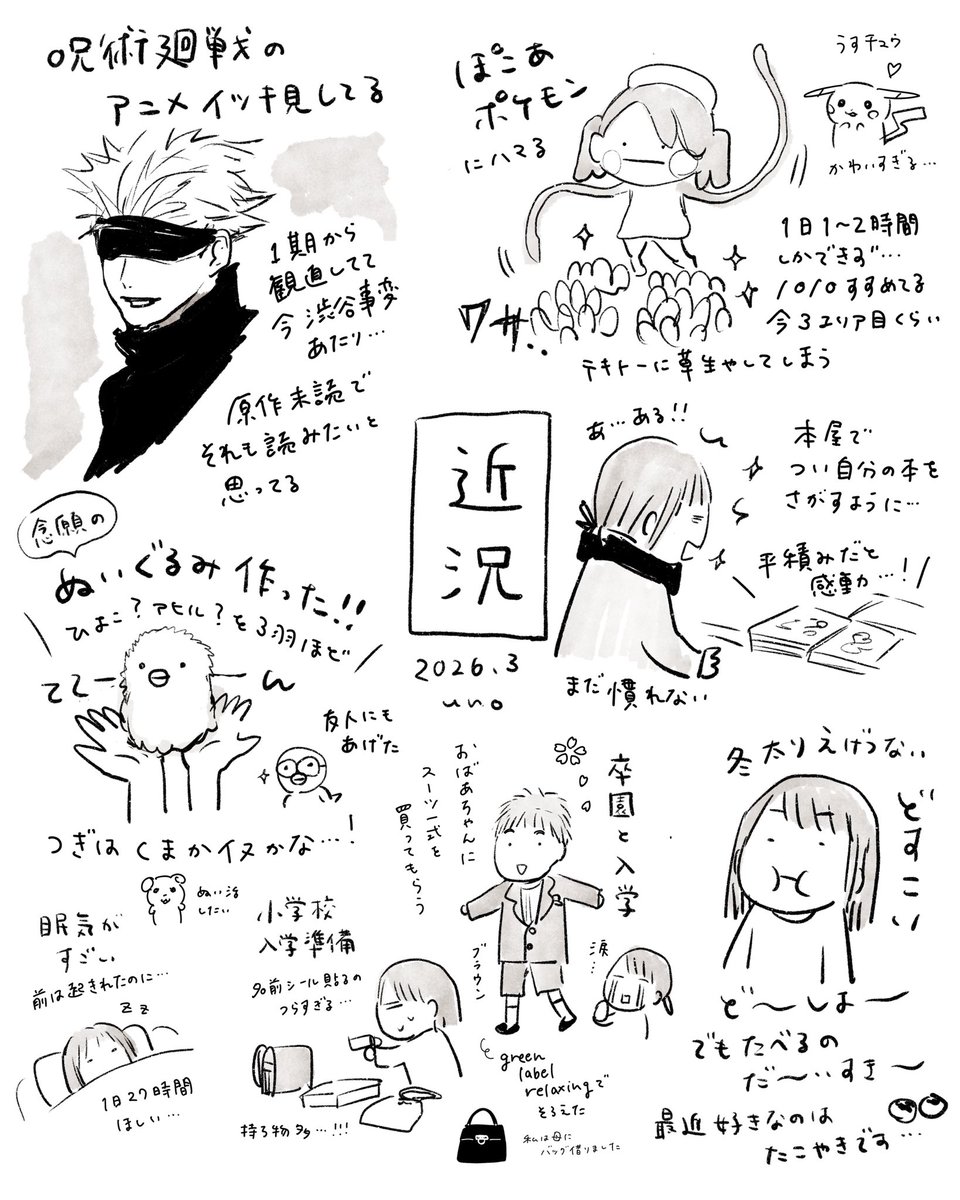 呪術廻戦の
アニメイッキ見してる
1期から
観直してて
今渋谷事変
あたり…
原作未読で
それも読みたいと
思ってる
ぽこあ
ポケモン
にハマる
うすチュウ
♡
かわいすぎる…
1日1〜2時間
しかできず…
ノロノロすすめてる
今3エリア目くらい
ワサ..
テキトーに草生やしてしまう
近況
2026.3
uno
あ…ある!!
本屋で
つい自分の本を
さがすように…
平積みだと
感動…!
まだ慣れない
念願の
ぬいぐるみ作った!!
ひよこ?アヒル?を3羽ほど
ててーーん
友人にも
あげた
つぎはくまかイヌかな…!
ぬい活
したい
眠気が
すごい
前は起きれたのに…
zz
1日27時間
ほしい…
小学校
入学準備
名前シール貼るの
つらすぎる…
持ち物多…!!!
卒園と入学
おばあちゃんに
スーツ一式を
買ってもらう
ブラウン
涙…
green
label
relaxingで
そろえた
私は母に
バッグ借りました
冬太りえげつない
どすこい
ど〜しよ〜
でもたべるの
だ〜いすき〜
最近好きなのは
たこやきです…